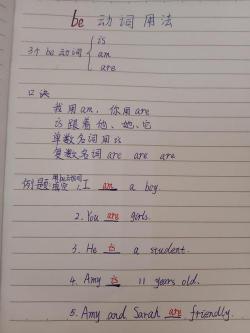 be 动词用法
3个 be 动词 { is
am
are
口诀
我用am, 你用are
is 跟着他、她、它
单数名词用is
复数名词 are are are
例题: 用be动词填空 1. I am a boy.
2. You are girls.
3. He is a student.
4. Amy is 11 years old.
5. Amy and Sarah are friendly.